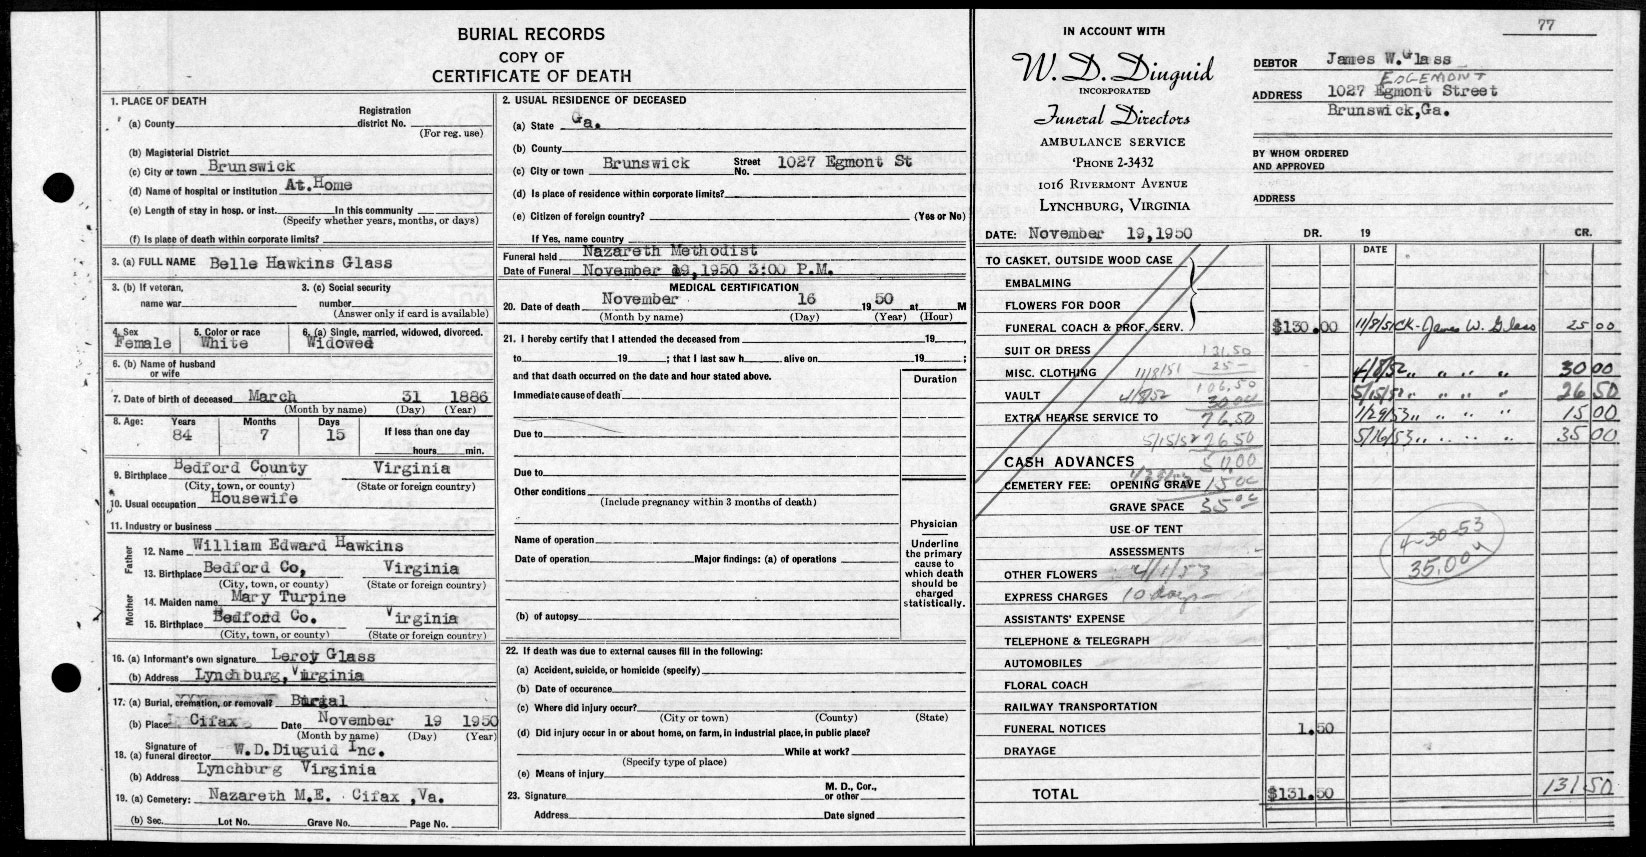 BURIAL RECORDS
COPY OF
CERTIFICATE OF DEATH
1. PLACE OF DEATH
(a) County
Registration
district No.
(For reg. use)
(b) Magisterial District
(c) City or town Brunswick
(d) Name of hospital or institution At.Home
(e) Length of stay in hosp. or inst. In this community
(Specify whether years, months, or days)
(f) Is place of death within corporate limits?
3. (a) FULL NAME Belle Hawkins Glass
3. (b) If veteran,
name war
3. (c) Social security
number
(Answer only if card is available)
4. Sex
Female
5. Color or race
White
6. (a) Single, married, widowed, divorced.
Widowed
6. (b) Name of husband
or wife
7. Date of birth of deceased March 31 1886
(Month by name) (Day) (Year)
8. Age: Years Months Days
84 7 15
If less than one day
hours min.
9. Birthplace Bedford County Virginia
(City, town, or county) (State or foreign country)
10. Usual occupation Housewife
11. Industry or business
Father
12. Name William Edward Hawkins
13. Birthplace Bedford Co, Virginia
(City, town, or county) (State or foreign country)
Mother
14. Maiden name Mary Turpine
15. Birthplace Bedford Co. Virginia
(City, town, or county) (State or foreign country)
16. (a) Informant's own signature Leroy Glass
(b) Address Lynchburg, Virginia
17. (a) Burial, cremation, or removal? Burial
(b) Place Cifax Date November 19 1950
(Month by name) (Day) (Year)
18. (a) Signature of
funeral director W.D.Diuguid Inc.
(b) Address Lynchburg Virginia
19. (a) Cemetery: Nazareth M.E. Cifax ,Va.
(b) Sec. Lot No. Grave No. Page No.
2. USUAL RESIDENCE OF DECEASED
(a) State Ga.
(b) County
(c) City or town Brunswick Street No. 1027 Egmont St
(d) Is place of residence within corporate limits?
(e) Citizen of foreign country? (Yes or No)
If Yes, name country
Funeral held Nazareth Methodist
Date of Funeral November 19,1950 3:00 P.M.
MEDICAL CERTIFICATION
20. Date of death November 16 1950 at M
(Month by name) (Day) (Year) (Hour)
21. I hereby certify that I attended the deceased from 19 ,
to 19 ; that I last saw h alive on 19 ;
and that death occurred on the date and hour stated above.
Duration
Immediate cause of death
Due to
Due to
Other conditions
(Include pregnancy within 3 months of death)
Name of operation
Date of operation Major findings: (a) of operations
(b) of autopsy
Physician
Underline
the primary
cause to
which death
should be
charged
statistically.
22. If death was due to external causes fill in the following:
(a) Accident, suicide, or homicide (specify)
(b) Date of occurence
(c) Where did injury occur?
(City or town) (County) (State)
(d) Did injury occur in or about home, on farm, in industrial place, in public place?
While at work?
(Specify type of place)
(e) Means of injury
23. Signature M. D., Cor., or other
Address Date signed
77
IN ACCOUNT WITH
W. D. Diuguid
INCORPORATED
Funeral Directors
AMBULANCE SERVICE
'PHONE 2-3432
1016 RIVERMONT AVENUE
LYNCHBURG, VIRGINIA
DEBTOR James W.Glass
EDGEMONT
ADDRESS 1027 Egmont Street
Brunswick,Ga.
BY WHOM ORDERED
AND APPROVED
ADDRESS
DATE: November 19,1950 DR. 19 CR.
DATE
TO CASKET, OUTSIDE WOOD CASE
EMBALMING
FLOWERS FOR DOOR
FUNERAL COACH & PROF. SERV. $130.00 11/8/51 CK-James W. Glass 25 00
SUIT OR DRESS 131.50
MISC. CLOTHING 11/8/51 25- 4/8/52 " " " " 30 00
106.50
VAULT 4/8/52 30.00 5/15/52 " " " " 26 50
EXTRA HEARSE SERVICE TO 76.50 1/29/53 " " " " 15 00
5/15/52 26.50 5/16/53 " " " " 35 00
CASH ADVANCES 50.00
CEMETERY FEE: OPENING GRAVE 15.00
GRAVE SPACE 35.00
USE OF TENT
4-30-53
ASSESSMENTS
35.00
OTHER FLOWERS 4/1/53
EXPRESS CHARGES 10 days
ASSISTANTS' EXPENSE
TELEPHONE & TELEGRAPH
AUTOMOBILES
FLORAL COACH
RAILWAY TRANSPORTATION
FUNERAL NOTICES 1.50
DRAYAGE
TOTAL $131.50 131 50